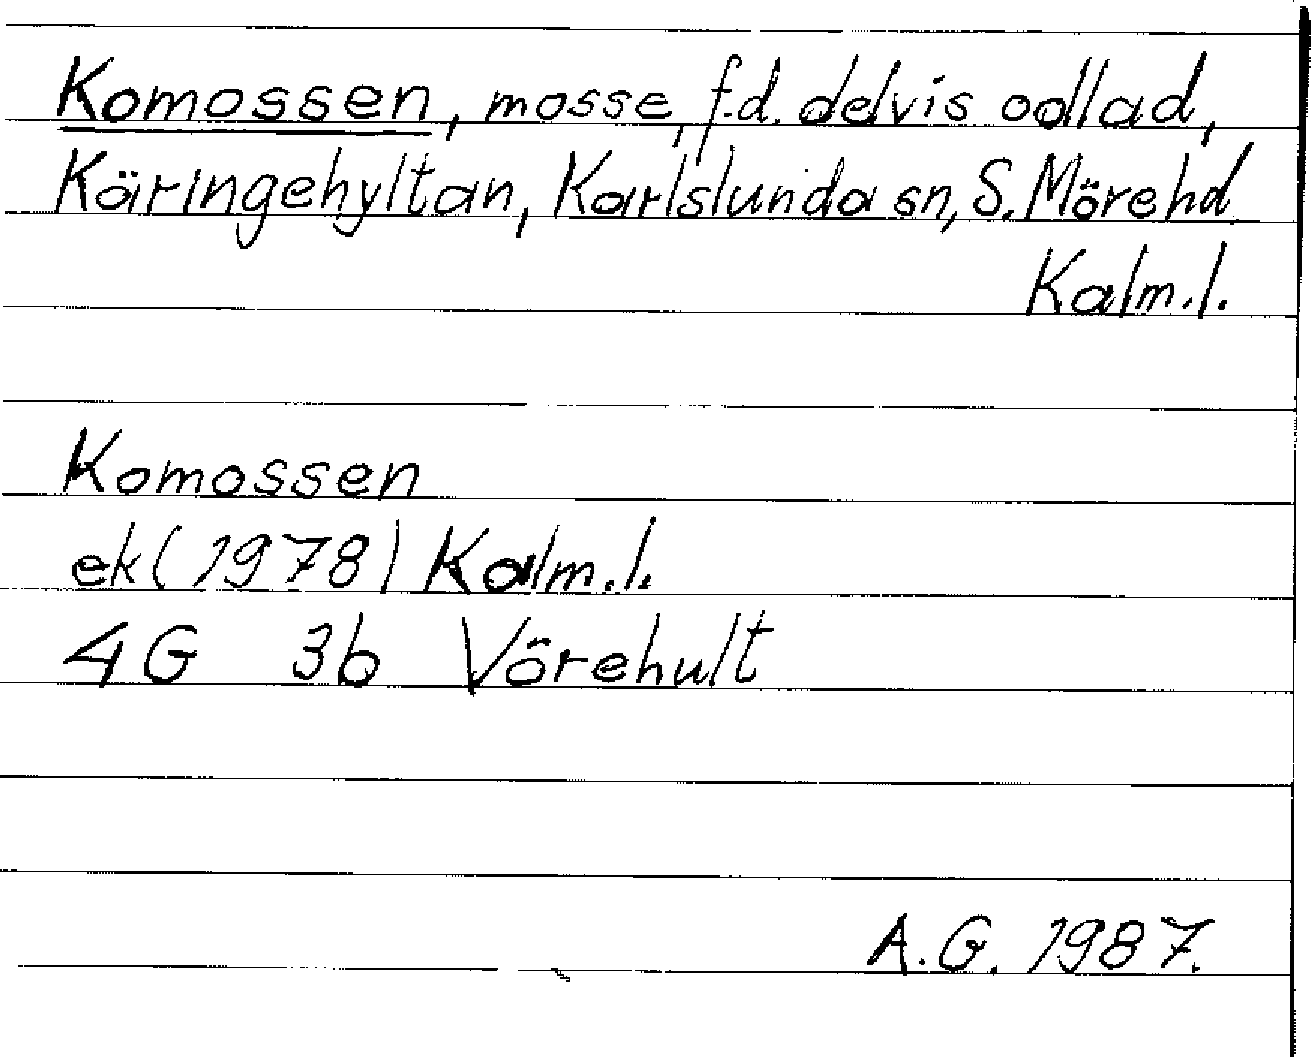 Komossen, mosse, f.d. delvis odlad,
Käringehyltan, Karlslunda sn, S. Möre hd
Kalm.l.
Komossen
ek (1978) Kalm.l.
4G 3b Vörehult
A.G. 1987.